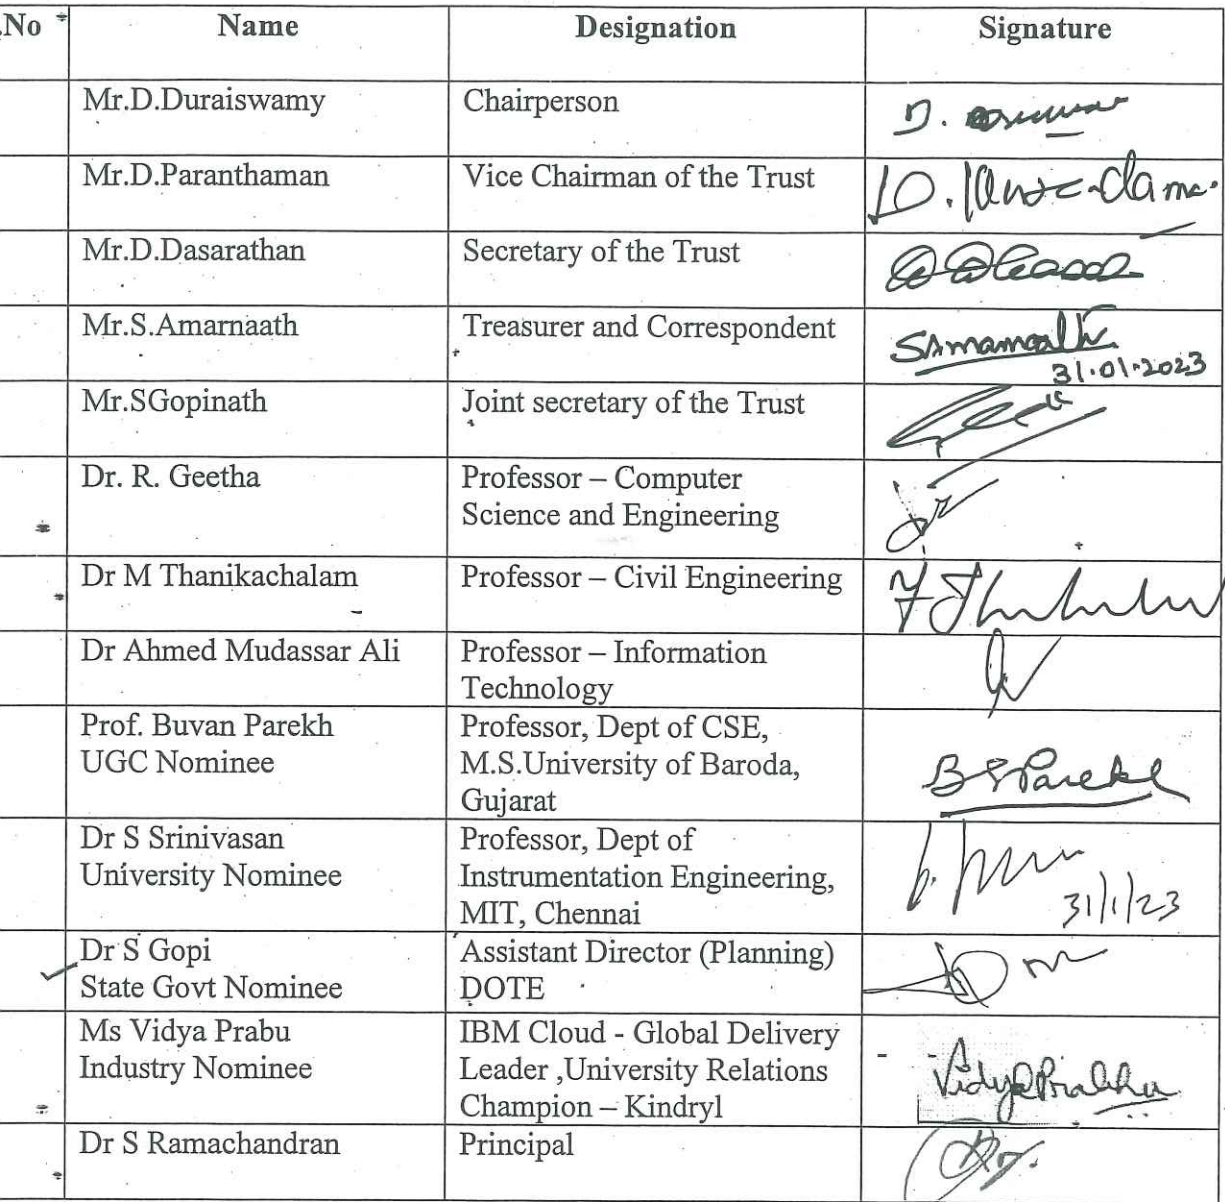 .No Name Designation Signature
Mr.D.Duraiswamy Chairperson
Mr.D.Paranthaman Vice Chairman of the Trust
Mr.D.Dasarathan Secretary of the Trust
Mr.S.Amarnaath Treasurer and Correspondent
31.01.2023
Mr.SGopinath Joint secretary of the Trust
Dr. R. Geetha Professor – Computer
Science and Engineering
Dr M Thanikachalam Professor – Civil Engineering
Dr Ahmed Mudassar Ali Professor – Information
Technology
Prof. Buvan Parekh Professor, Dept of CSE,
UGC Nominee M.S.University of Baroda,
Gujarat
B S Parekh
Dr S Srinivasan Professor, Dept of
University Nominee Instrumentation Engineering,
MIT, Chennai
31/1/23
Dr S Gopi Assistant Director (Planning)
State Govt Nominee DOTE
Ms Vidya Prabu IBM Cloud - Global Delivery
Industry Nominee Leader ,University Relations
Champion – Kindryl
VidyaPrabhu
Dr S Ramachandran Principal